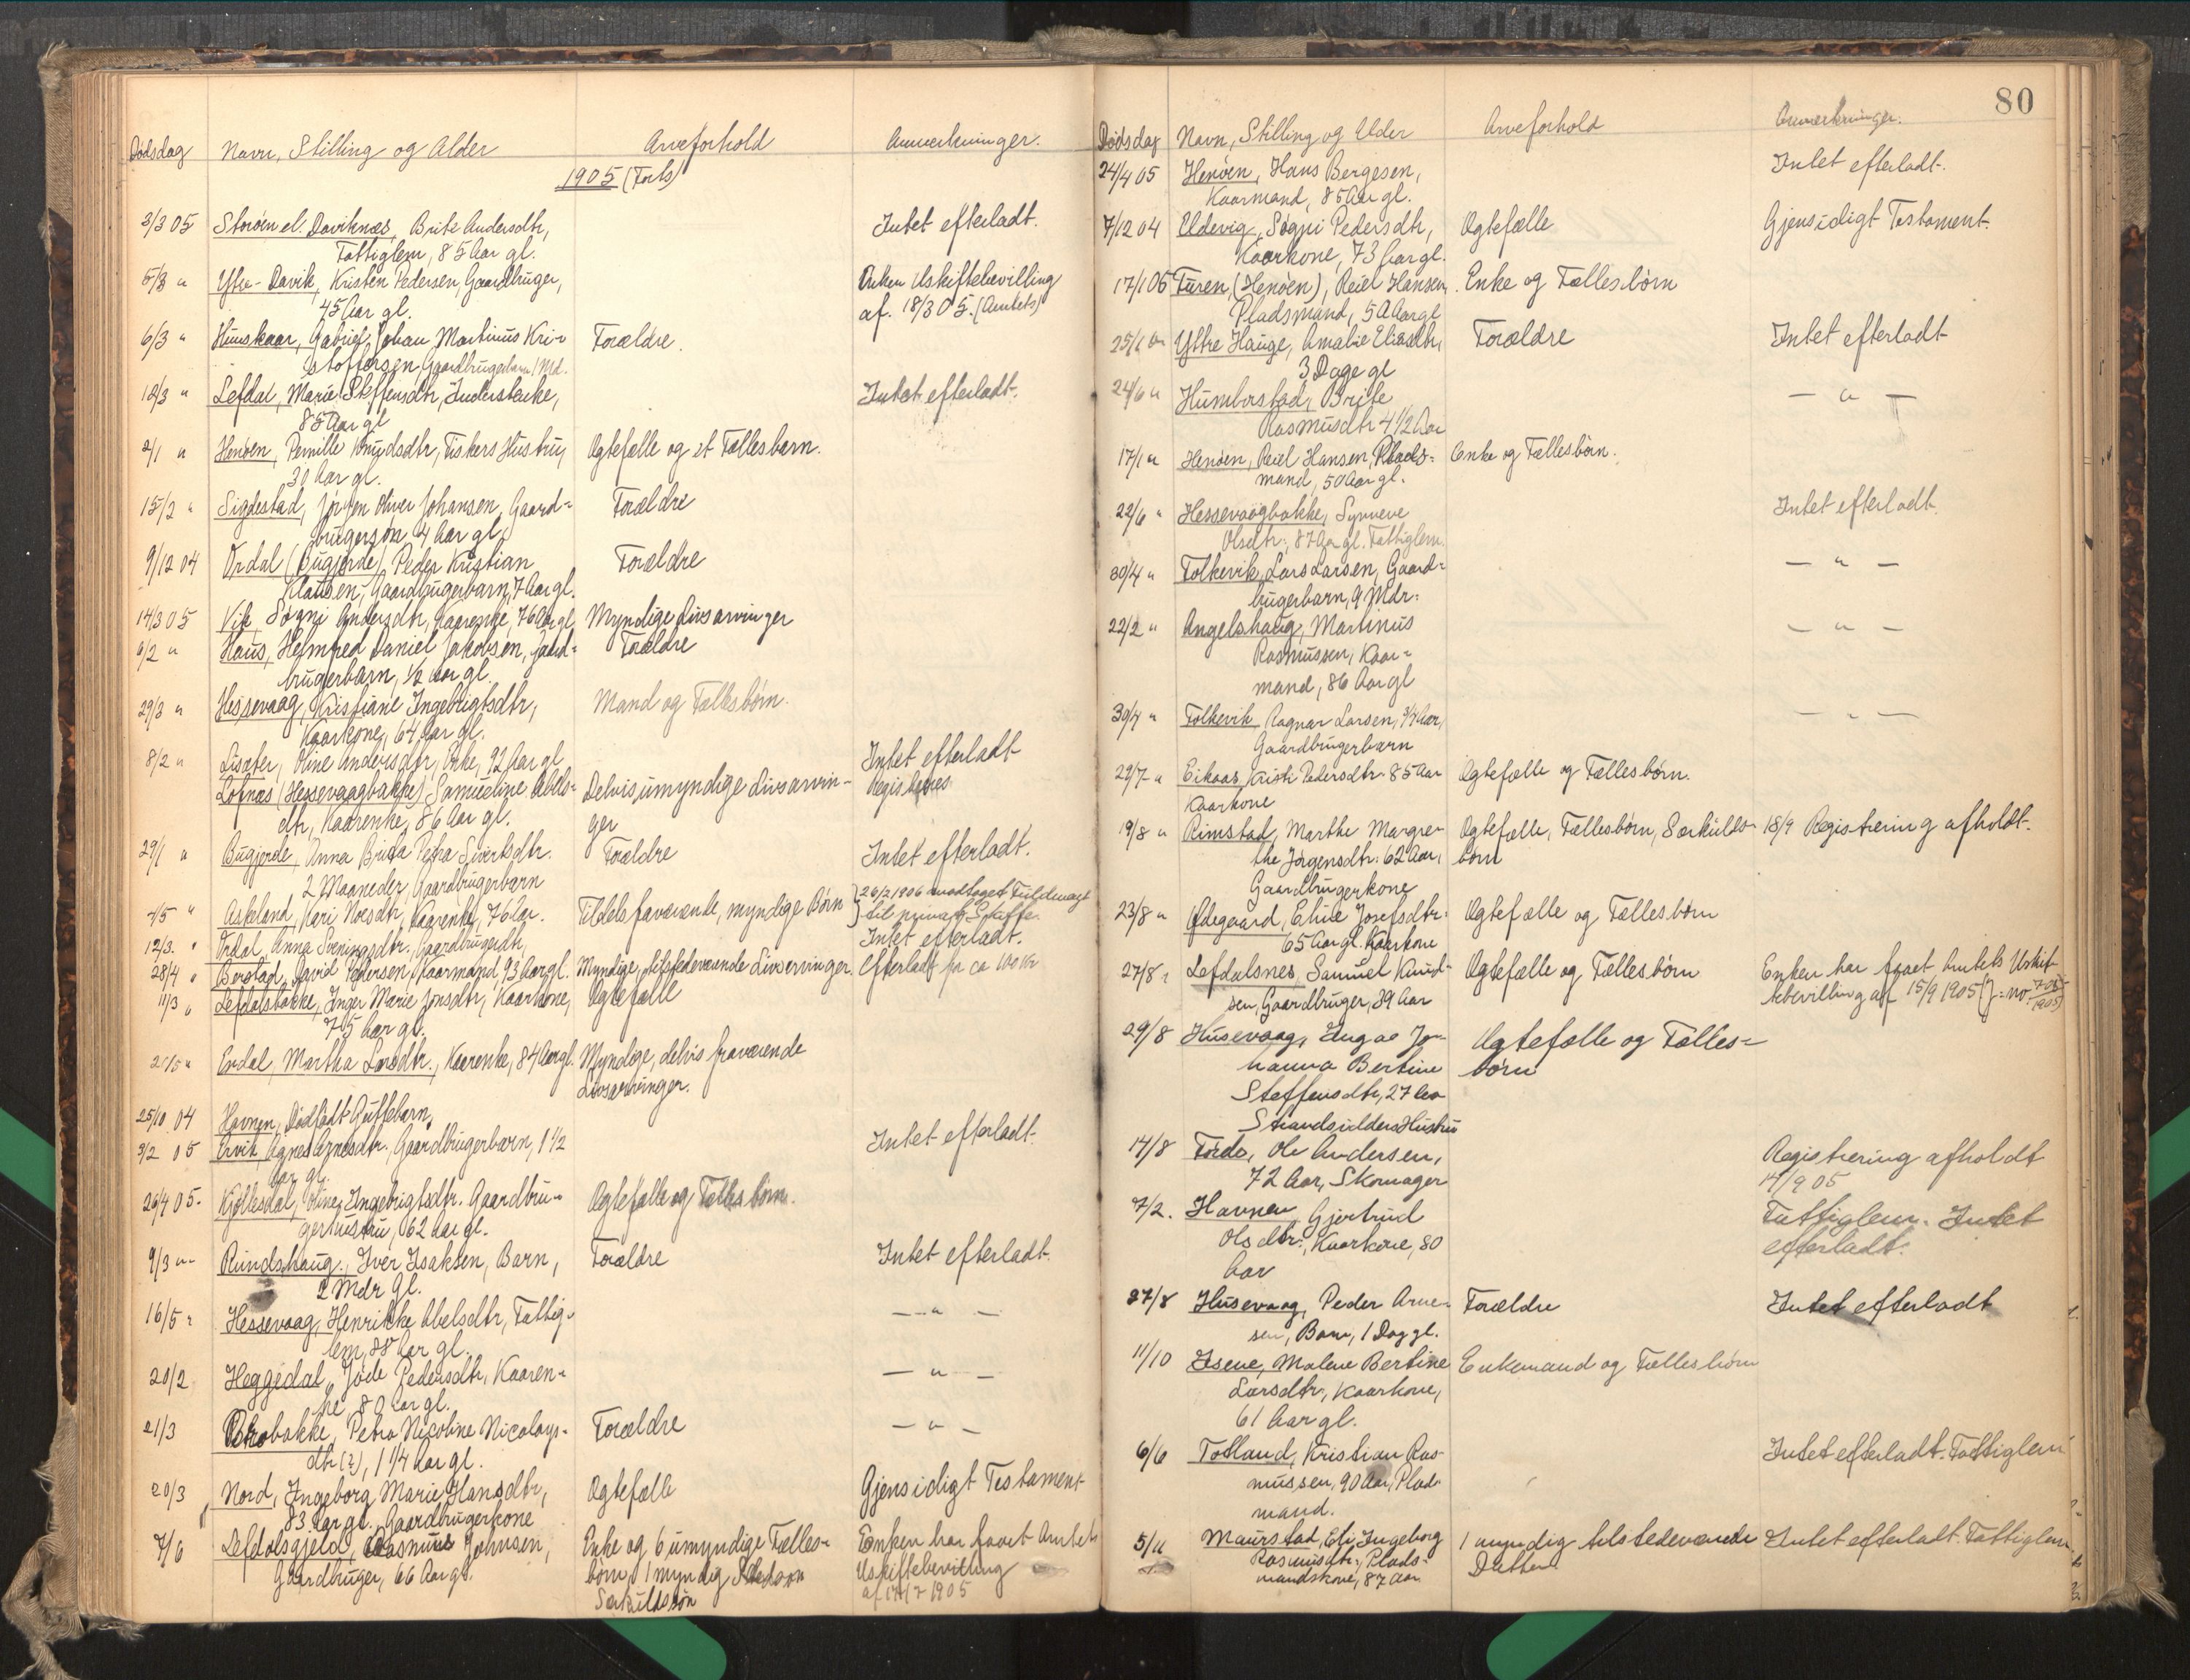 80
Dødsdag Navn, Stilling og Alder Arveforhold Anmerkninger.
1905 (Forts)
3/3 05 Storøen el. Daviknæs, Brite Andersdtr, Intet efterladt.
Fattiglem, 85 Aar gl.
5/3 " Ytre-Davik, Kristen Pedersen, Gaardbruger, Enken Uskiftebevilling
45 Aar gl. af 18/3 05. (Amtets)
6/3 " Hunskaar, Gabriel Johan Martinus Kri- Forældre.
stoffersen, Gaardbrugerbarn 1 Md.
12/3 " Lefdal, Marie Steffensdtr, Inderstenke, Intet efterladt.
85 Aar gl
2/1 " Henøen, Pernille Knudsdtr, Fiskers Hustru, Ægtefælle og et Fællesbarn.
30 Aar gl.
15/2 " Sigdestad, Jørgen Oliver Johansen, Gaard- Forældre
brugersøn 4 Aar gl.
9/12 04 Ørdal (Bugjerde) Peder Kristian Forældre
Klausen, Gaardbrugerbarn, 7 Aar gl.
14/3 05 Vik, Søgni Andersdtr, Kaarenke, 76 Aar gl Myndige Livsarvinger
6/2 " Haus, Helmfred Daniel Jakobsen, Gaard- Forældre
brugerbarn, 1/2 Aar gl.
29/3 " Hessevaag, Kristiane Ingebrigtsdtr, Mand og Fællesbørn.
Kaarkone, 64 Aar gl.
8/2 " Lisæter, Oline Andersdtr, Enke, 92 Aar gl Intet efterladt
Lofnæs (Hessevaagbakke) Samueline Abels- Delvis umyndige Livsarvin- Registreres
dtr, Kaarenke, 86 Aar gl. ger
29/1 " Bugjerde, Anna Brita Petra Sivertsdtr. Forældre Intet efterladt.
2 Maaneder, Gaardbrugerbarn
4/5 " Askeland, Kari Moesdtr, Kaarenke, 76 Aar. Tildels fraværende, myndige Børn } 26/2 1906 modtaget Fuldmagt
til privat Skifte.
12/3. " Ørdal, Anna Sveningsdtr. Gaardbrugerdtr, Intet efterladt.
28/4 " Berstad, David Pedersen Kaarmand, 93 Aar gl. Myndige, tilstedeværende Livsarvinger. Efterladt fra ca 100 Kr
11/3 " Lefdalsbakke, Inger Marie Jonsdtr, Kaarkone, Ægtefælle
75 Aar gl.
21/5 " Endal, Martha Larsdtr., Kaarenke, 84 Aar gl. Myndige, delvis fraværende
Livsarvinger.
25/10 04 Havnen, Dødfødt Guttebarn,
3/2 05 Ervik, Agnes Agnesdtr. Gaardbrugerbarn, 1 1/2 Intet efterladt.
Aar gl.
26/4 05. Kjøllesdal, Oline Ingebrigtsdtr. Gaardbru- Ægtefælle og Fællesbørn.
gerhustru, 62 Aar gl.
9/3 " Rundshaug, Iver Isaksen, Barn, Forældre Intet efterladt.
2 Mdr gl.
16/5 " Hessevaag, Henrikke Abelsdtr, Fattig- — " —
lem, 88 Aar gl.
20/2 Heggedal, Jøde Pedersdtr, Kaaren- — " —
ke 80 Aar gl.
21/3 bakke, Petra Nicoline Nicolays- Forældre — " —
dtr (?), 1 1/4 Aar gl.
20/3 Nord, Ingeborg Marie Hansdtr, Ægtefælle Gjensidigt Testament
83 Aar gl., Gaardbrugerkone
7/6 Lefdalsgjeld, Rasmus Johnsen, Enke og 6 umyndige Fælles- Enken har faaet Amtets
Gaardbruger, 66 Aar gl. børn, 1 myndig Uskiftebevilling
Særkuldssøn af 17/7 1905
Dødsdag Navn, Stilling og Alder Arveforhold Anmerkninger.
24/4 05 Henøen, Hans Bergesen, Intet efterladt.
Kaarmand, 85 Aar gl.
7/12 04 Eldevig, Søgni Pedersdtr, Ægtefælle Gjensidigt Testament.
Kaarkone, 73 Aar gl.
17/1 05 Furen, (Henøen), Reiel Hansen Enke og Fællesbørn
Pladsmand, 50 Aar gl
25/6 Ytre Hauge, Amalie Eliasdtr, Forældre Intet efterladt
3 Dage gl
24/6 " Humborstad, Brite — " —
Rasmusdtr 4 1/2 Aar
17/1 " Henøen, Reiel Hansen, Plads- Enke og Fællesbørn.
mand, 50 Aar gl.
22/6 " Hessevaagbakke, Synneve Intet efterladt.
Olsdtr, 87 Aar gl. Fattiglem.
30/4 " Folkevik, Lars Larsen, Gaard- — " —
brugerbarn, 9 Mdr.
22/2 " Angelshaug, Martinus — " —
Rasmussen, Kaar-
mand, 86 Aar gl
30/4 " Folkevik Ragnar Larsen, 3/4 Aar, — " —
Gaardbrugerbarn
29/7 " Eikaas, Kristi Pedersdtr. 85 Aar Ægtefælle og Fællesbørn.
Kaarkone
19/8 " Rimstad, Marthe Margre- Ægtefælle, Fællesbørn, Særkulds- 18/9 Registrering afholdt.
the Jørgensdtr. 62 Aar, børn
Gaardbrugerkone
23/8 " Ødegaard, Eline Josefsdtr. Ægtefælle og Fællesbørn
65 Aar gl. Kaarkone
27/8 " Lefdalsnes, Samuel Knud- Ægtefælle og Fællesbørn Enken har faaet Amtets Uskif-
sen, Gaardbruger, 39 Aar tebevilling af 15/9 1905 (J-no. /1905)
29/8 Husevaag, Ingae Jo- Ægtefælle og Fælles-
hanna Bertine børn
Steffensdtr, 27 Aar
Strandsidders Hustru
14/8 Førde, Ole Andersen, Registrering afholdt
72 Aar, Skomager 14/9 05
7/2. Havnen, Gjertrud Fattiglem. Intet
Olsdtr., Kaarkone, 80 efterladt.
Aar
27/8 Husevaag, Peder Arne- Forældre Intet efterladt
sen, Barn, 1 Dag gl.
11/10 Isene, Malene Bertine Enkemand og Fællesbørn
Larsdtr, Kaarkone,
61 Aar gl.
6/6 Totland, Kristian Ras- Intet efterladt. Fattiglem
mussen, 90 Aar, Plads-
mand.
5/11 Maurstad, Eli Ingeborg 1 myndig tilstedeværende Intet efterladt. Fattiglem
Rasmusdtr., Plads- Datter.
mandskone, 87 Aar.